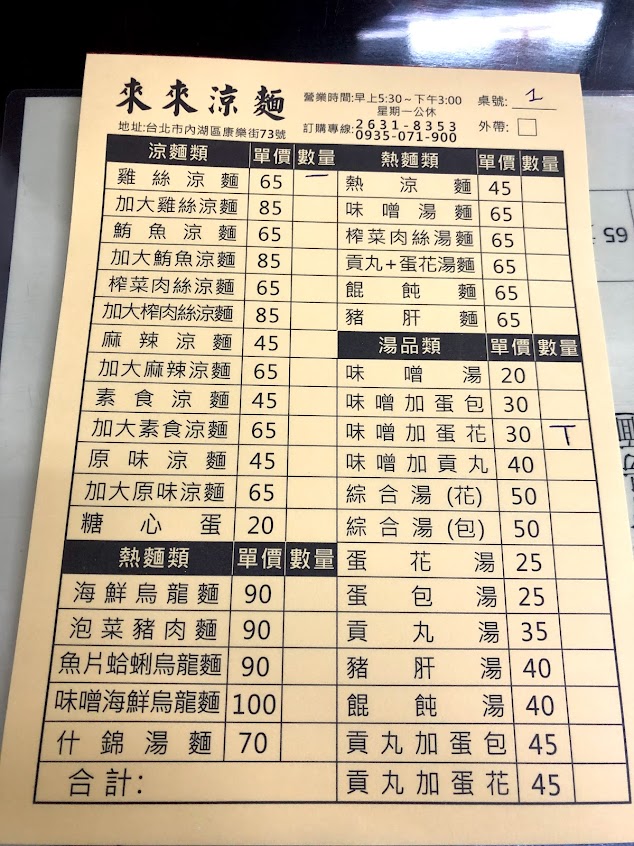 來來涼麵
營業時間:早上5:30~下午3:00
星期一公休
桌號: 1
地址:台北市內湖區康樂街73號
訂購專線: 2631-8353
0935-071-900
外帶: □
涼麵類 單價 數量
雞絲涼麵 65 一
加大雞絲涼麵 85
鮪魚涼麵 65
加大鮪魚涼麵 85
榨菜肉絲涼麵 65
加大榨肉絲涼麵 85
麻辣涼麵 45
加大麻辣涼麵 65
素食涼麵 45
加大素食涼麵 65
原味涼麵 45
加大原味涼麵 65
糖心蛋 20
熱麵類 單價 數量
海鮮烏龍麵 90
泡菜豬肉麵 90
魚片蛤蜊烏龍麵 90
味噌海鮮烏龍麵 100
什錦湯麵 70
合計:
熱麵類 單價 數量
熱涼麵 45
味噌湯麵 65
榨菜肉絲湯麵 65
貢丸+蛋花湯麵 65
餛飩麵 65
豬肝麵 65
湯品類 單價 數量
味噌湯 20
味噌加蛋包 30
味噌加蛋花 30 T
味噌加貢丸 40
綜合湯(花) 50
綜合湯(包) 50
蛋花湯 25
蛋包湯 25
貢丸湯 35
豬肝湯 40
餛飩湯 40
貢丸加蛋包 45
貢丸加蛋花 45
65